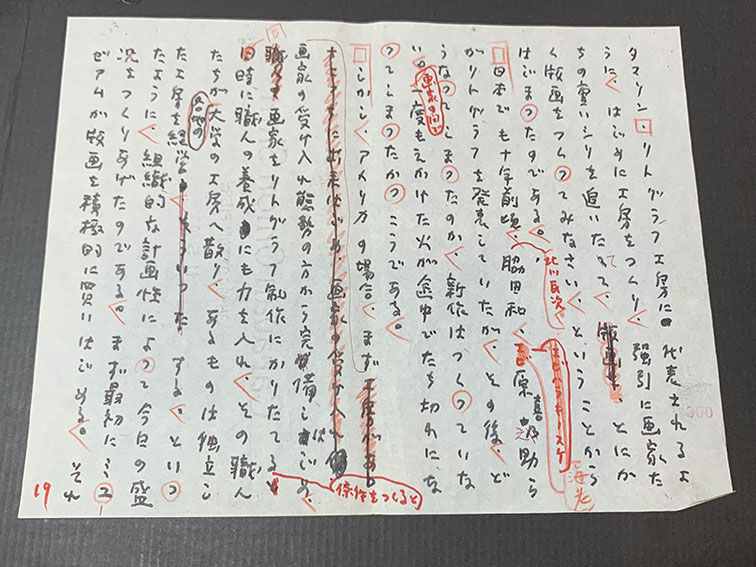 タマリン・リトグラフ工房に代表されるよ
うに、はじめに工房をつくり、強引に画家た
ちの重いシリを追いたてて、とにか
く版画をつくってみなさい、ということから
はじまったのである。
日本でも十年前頃、脇田和、北川民次。
海老原喜之助ら エビハラキノースケ
がリトグラフを発表していたが、その後、ど
うなってしまったのか、新作はつくっていな
い。一度もえかけた火が途中でたち切れにな
画家の間で
ってしまったかっこうである。
しかし、アメリカの場合、まず工房があり
画家の受け入れ態勢の方から完備しはじめ、
職人が画家をリトグラフ制作にかりたてる
条件をつくると
同時に職人の養成にも力を入れ、その職人
たちが大学の工房へ散り、あるものは独立し
各地の
た工房を経営する、といっ
たように、組織的な計画性によって今日の盛
況をつくりあげたのである。まず最初にミュ
ゼアムが版画を積極的に買いはじめる。それ
19
300